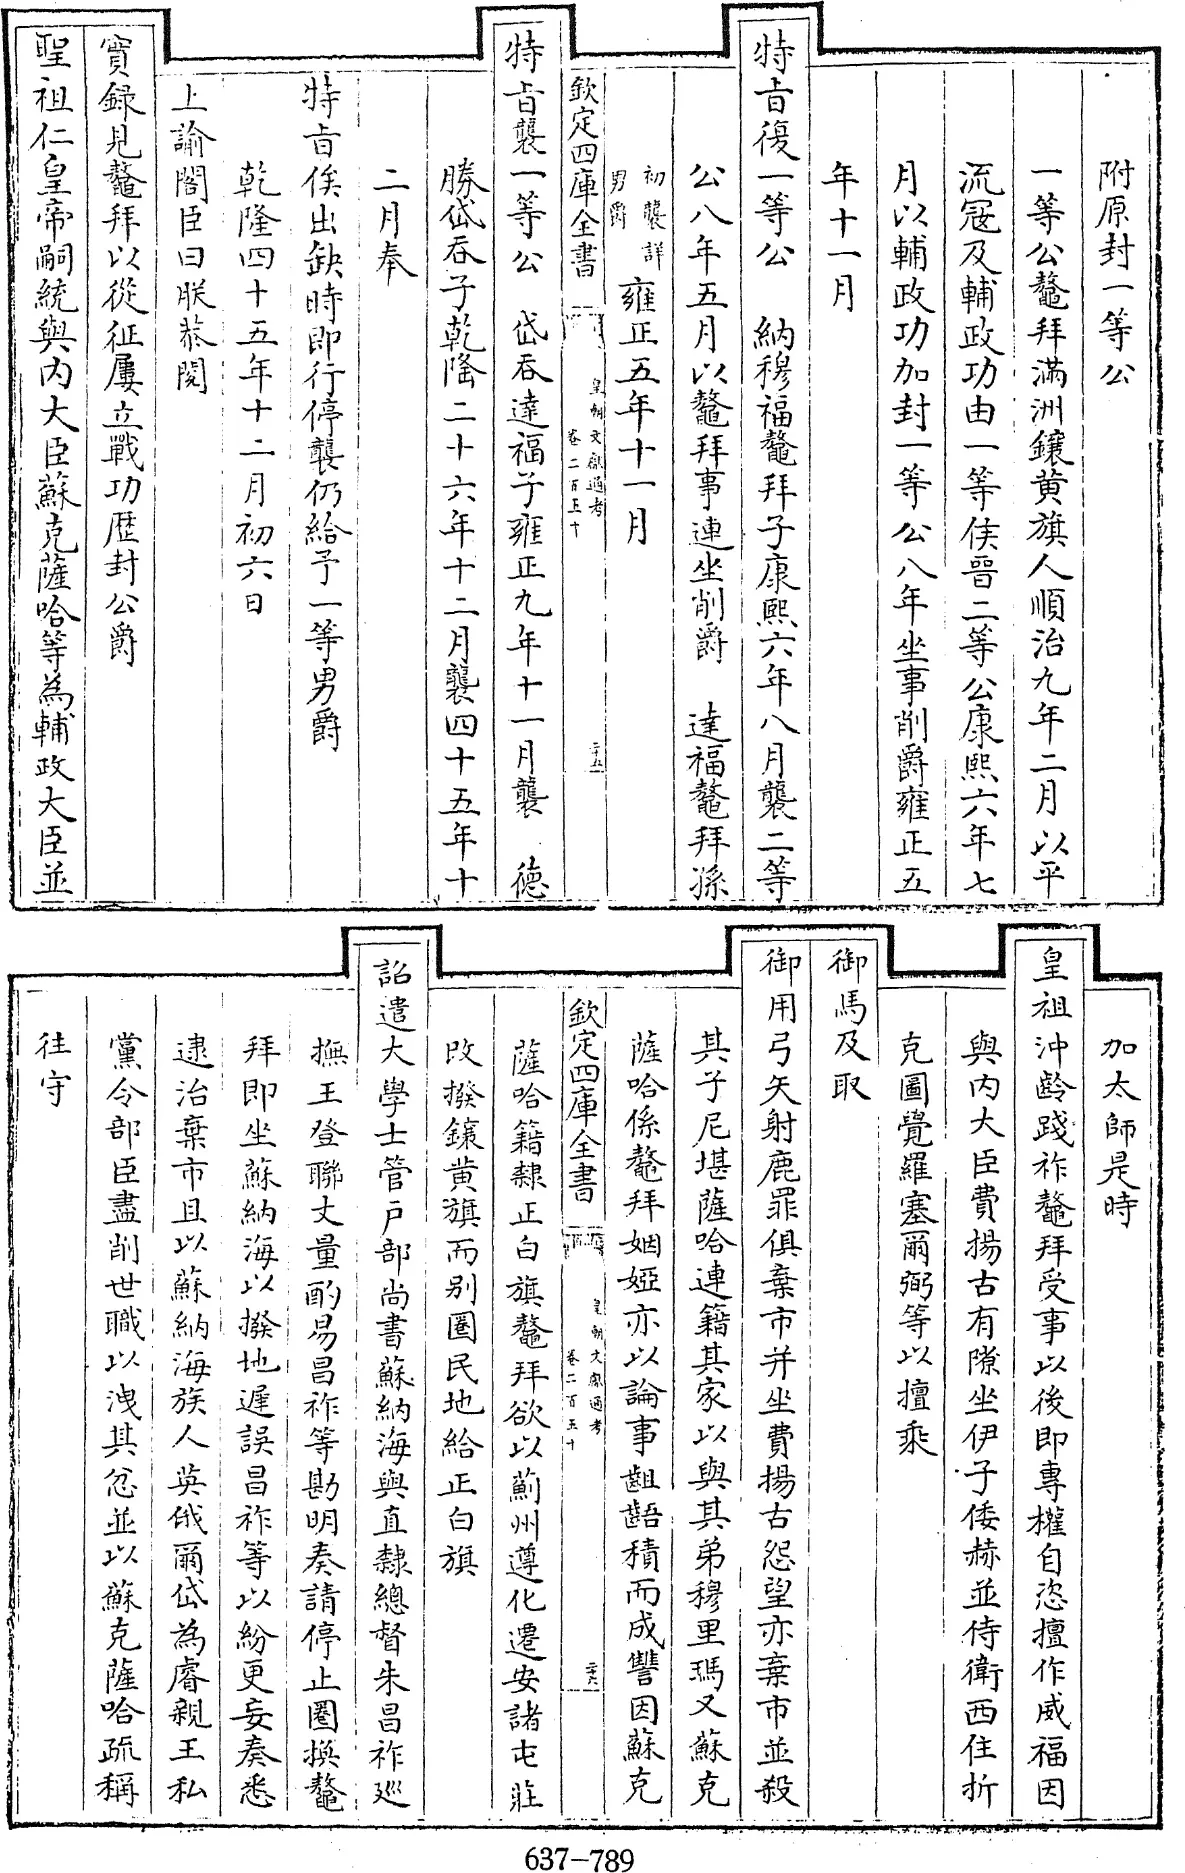 附原封一等公
一等公鼇拜滿洲鑲黃旗人順治九年二月以平
流寇及輔政功由一等侯晉二等公康熙六年七
月以輔政功加封一等公八年坐事削爵雍正五
年十一月
特旨復一等公 納穆福鼇拜子康熙六年八月襲二等
公八年五月以鼇拜事連坐削爵 達福鼇拜孫
初襲詳
男爵 雍正五年十一月
欽定四庫全書 皇朝文獻通考 卷二百五十 二十五
特旨襲一等公 岱吞達福子雍正九年十一月襲 德
勝岱吞子乾隆二十六年十二月襲四十五年十
二月奉
特旨俟出缺時即行停襲仍給予一等男爵
乾隆四十五年十二月初六日
上諭閣臣曰朕恭閱
實錄見鼇拜以從征屢立戰功歷封公爵
聖祖仁皇帝嗣統與內大臣蘇克薩哈等為輔政大臣並
加太師是時
皇祖沖齡踐祚鼇拜受事以後即專權自恣擅作威福因
與內大臣費揚古有隙坐伊子倭赫並侍衛西住折
克圖覺羅塞爾弼等以擅乘
御馬及取
御用弓矢射鹿罪俱棄市并坐費揚古怨望亦棄市並殺
其子尼堪薩哈連籍其家以與其弟穆里瑪又蘇克
薩哈係鼇拜姻婭亦以論事齟齬積而成讐因蘇克
欽定四庫全書 皇朝文獻通考 卷二百五十 二十六
薩哈籍隸正白旗鼇拜欲以薊州遵化遷安諸屯莊
改撥鑲黃旗而別圈民地給正白旗
詔遣大學士管戶部尚書蘇納海與直隸總督朱昌祚巡
撫王登聯丈量酌易昌祚等勘明奏請停止圈換鼇
拜即坐蘇納海以撥地遲誤昌祚等以紛更妄奏悉
逮治棄市且以蘇納海族人英俄爾岱為睿親王私
黨令部臣盡削世職以洩其忿並以蘇克薩哈疏稱
往守
637-789